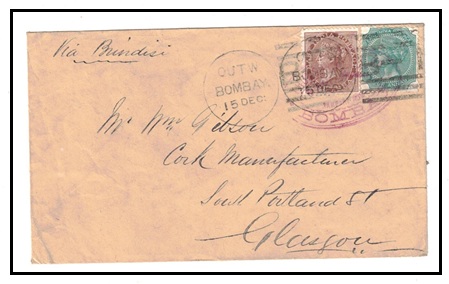 Via Brindisi
OUTW
BOMBAY
15 DEC
BOMB
Mr Wm Gilson
Cork Manufacturer
South Portland St
Glasgow